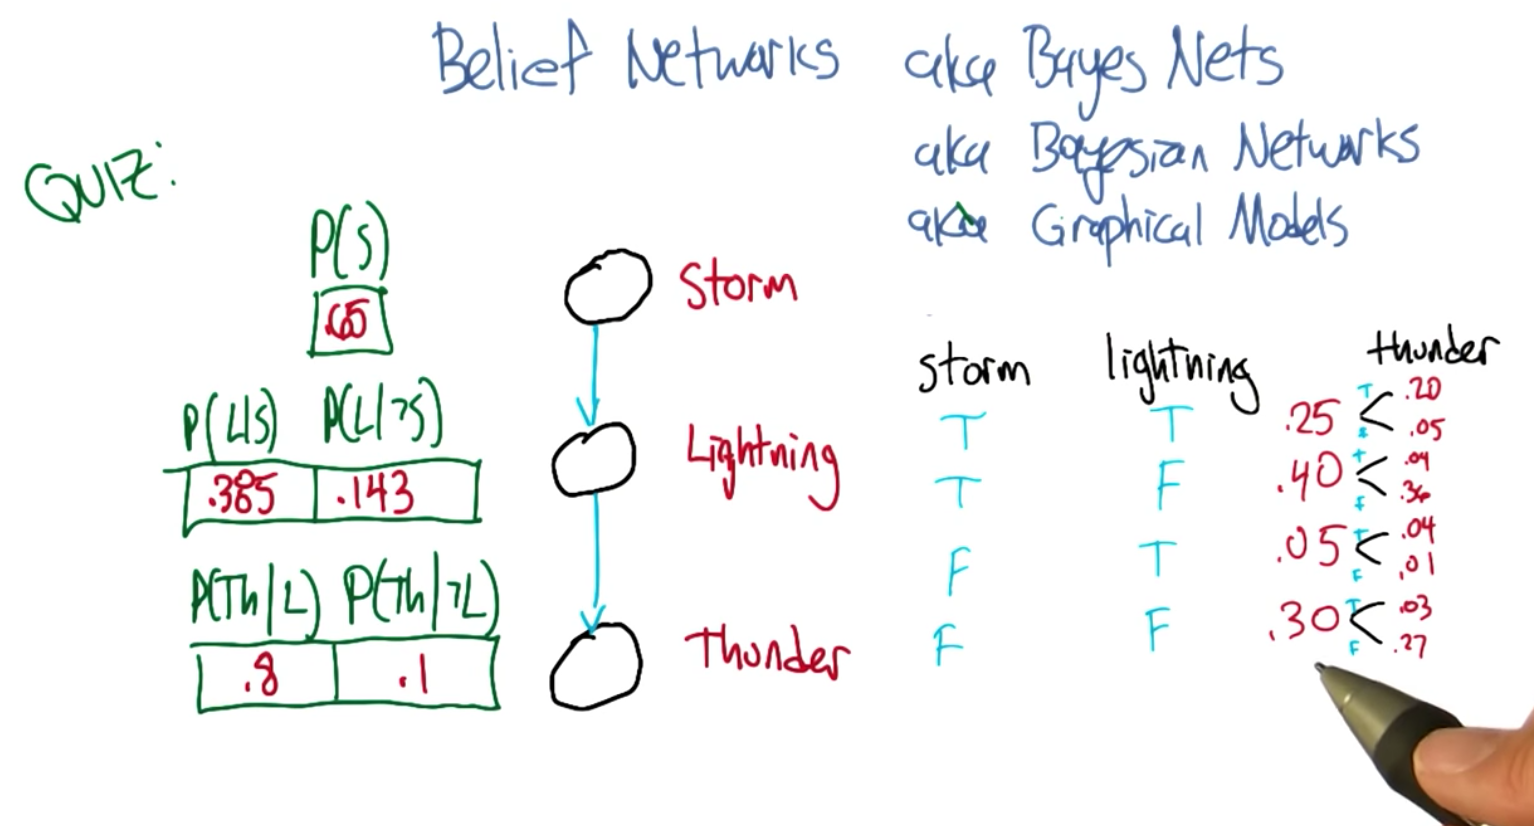 Belief Networks aka Bayes Nets
aka Bayesian Networks
aka Graphical Models
QUIZ:
P(S)
.65
P(L|S) P(L|¬S)
.385 .143
P(Th|L) P(Th|¬L)
.8 .1
Storm
Lightning
Thunder
storm lightning thunder
T T .25 T .20
.05
T F .40 T .04
F .36
F T .05 T .04
F .01
F F .30 T .03
F .27